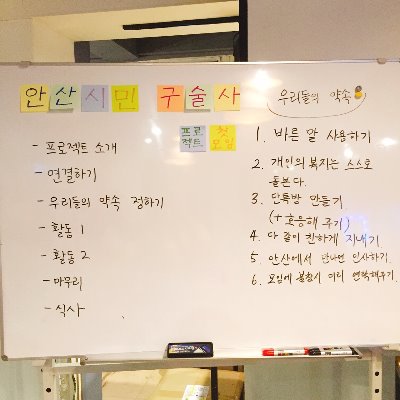 안산시민 구술사
프로젝트 첫모임
- 프로젝트 소개
- 연결하기
- 우리들의 약속 정하기
- 활동 1
- 활동 2
- 마무리
- 식사
우리들의 약속
1. 바른 말 사용하기
2. 개인의 복지는 스스로
돌본다.
3. 단톡방 만들기
(+호응해 주기)
4. 다 같이 친하게 지내기
5. 안산에서 만나면 인사하기.
6. 모임에 불참시 미리 연락해주기.